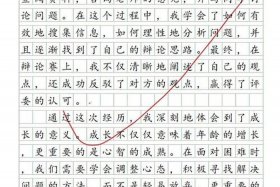 论问题。在这个过程中，我学会了如何有
效地搜集信息，如何理性地分析问题，并
且逐渐找到了自己的辩论思路。最终，在
辩论赛上，我不仅 了自己的观
点，还成功反驳了对方的观点，赢得了评
委的认可。
通过这次经历，我深刻地体会到了成
长的意义。成长不仅仅意味着年龄的增长，
更重要的是心智的成熟。在面对困难时，
我们需要学会调整心态，积极寻找解决
问题的方法，而不是轻易放